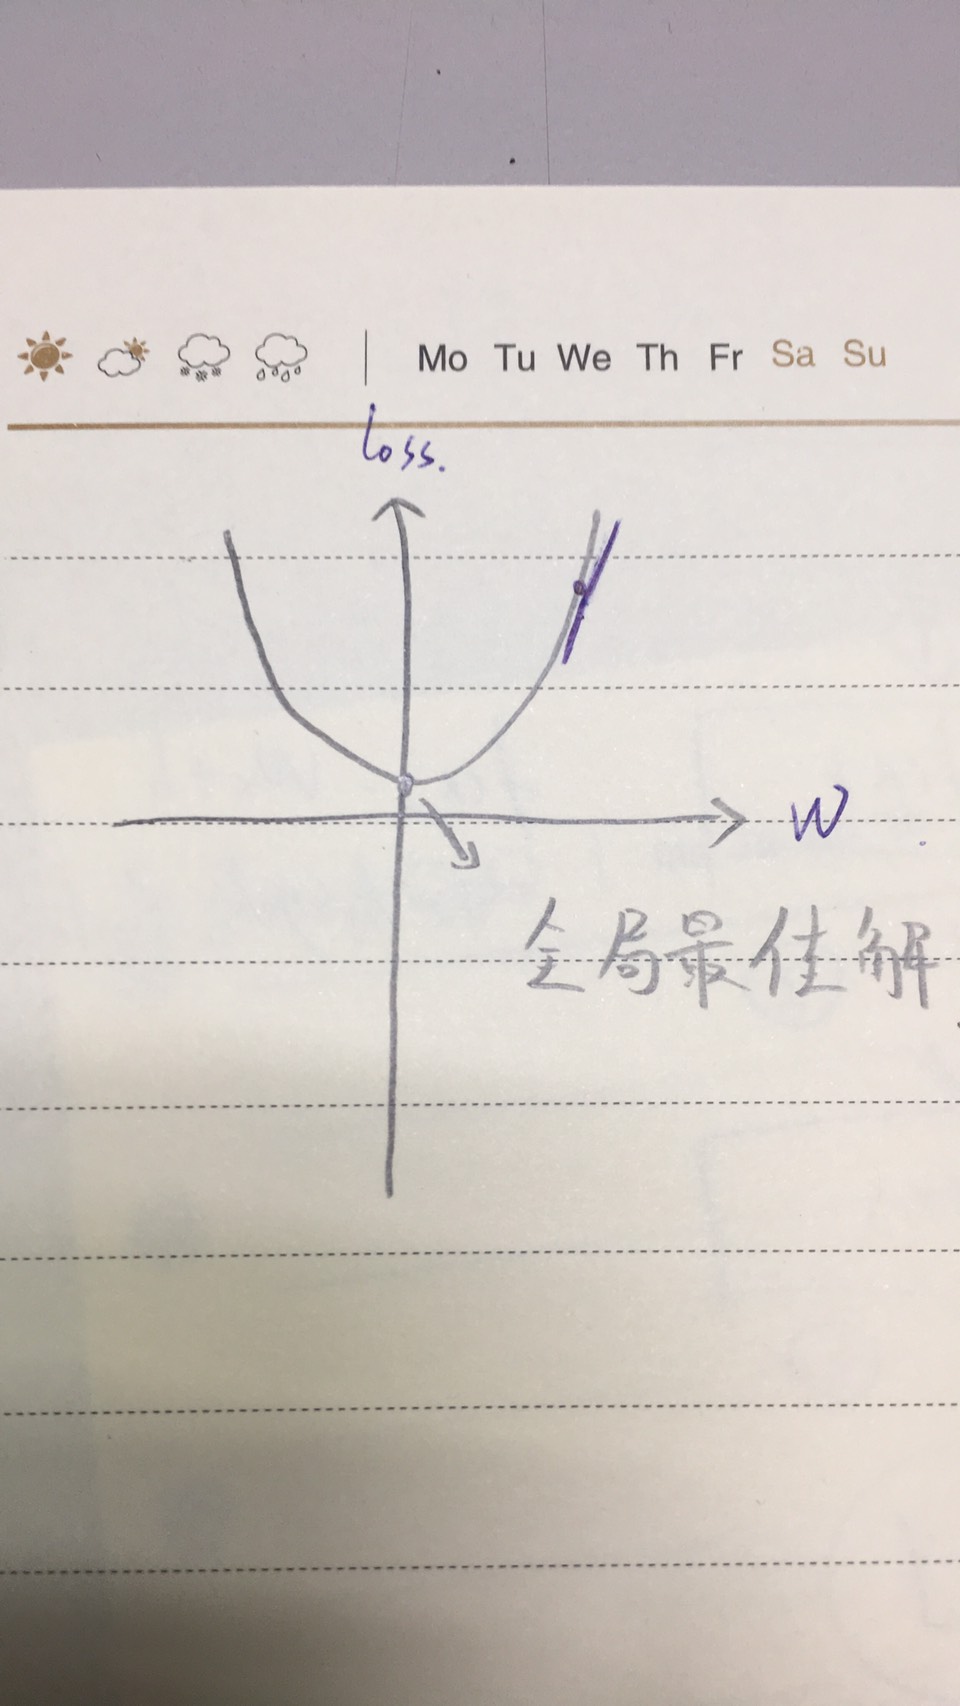 Mo Tu We Th Fr Sa Su
loss.
W
全局最佳解